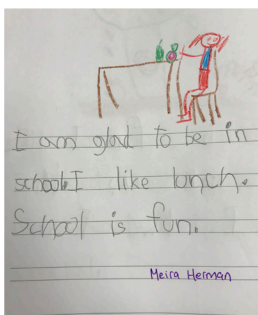 I am glad to be in
school. I like lunch.
School is fun.
Meira Herman